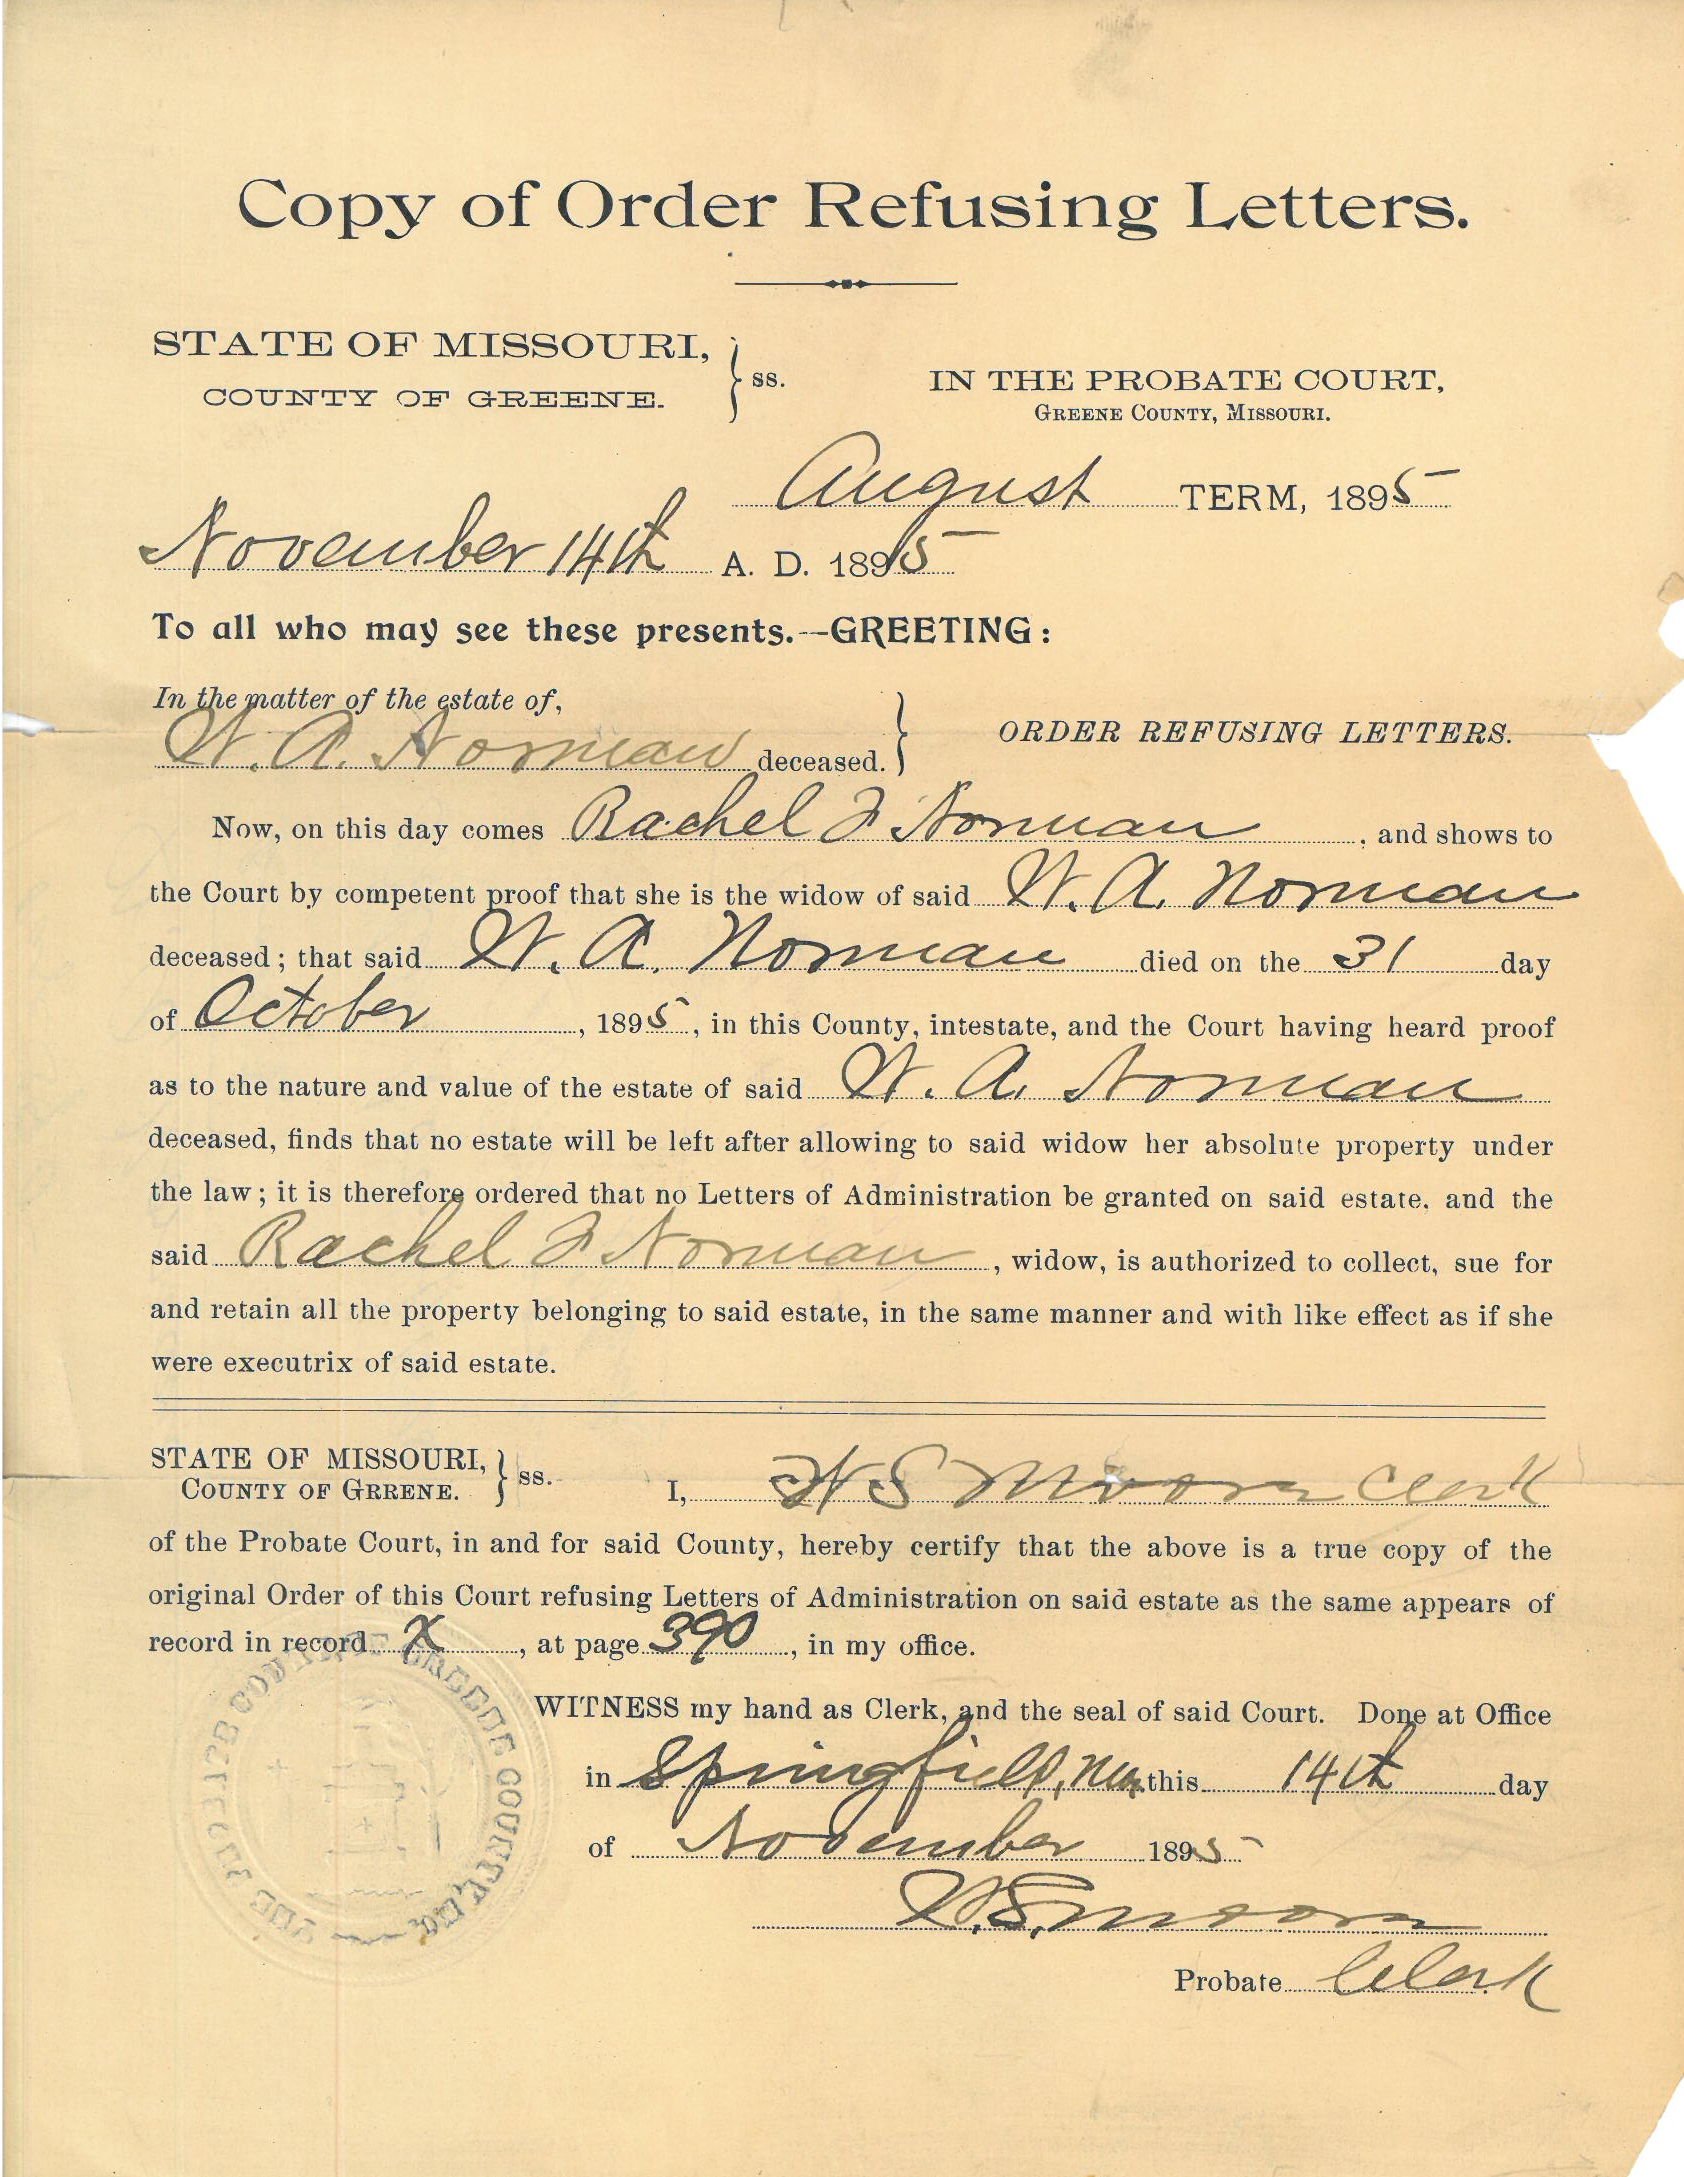 Copy of Order Refusing Letters.
STATE OF MISSOURI,
COUNTY OF GREENE.
ss.
IN THE PROBATE COURT,
GREENE COUNTY, MISSOURI.
August TERM, 1895
November 14th A. D. 1895
To all who may see these presents.--GREETING:
In the matter of the estate of,
W. A. Norman deceased.
ORDER REFUSING LETTERS.
Now, on this day comes Rachel F Norman, and shows to
the Court by competent proof that she is the widow of said W. A. Norman
deceased; that said W. A. Norman died on the 31 day
of October, 1895, in this County, intestate, and the Court having heard proof
as to the nature and value of the estate of said W. A. Norman
deceased, finds that no estate will be left after allowing to said widow her absolute property under
the law; it is therefore ordered that no Letters of Administration be granted on said estate, and the
said Rachel F Norman, widow, is authorized to collect, sue for
and retain all the property belonging to said estate, in the same manner and with like effect as if she
were executrix of said estate.
STATE OF MISSOURI,
COUNTY OF GRRENE.
ss.
I, W S Moore Clerk
of the Probate Court, in and for said County, hereby certify that the above is a true copy of the
original Order of this Court refusing Letters of Administration on said estate as the same appears of
record in record X, at page 390, in my office.
WITNESS my hand as Clerk, and the seal of said Court. Done at Office
in Springfield, Mo, this 14th day
of November 1895
W. S. Moore
Probate Clerk